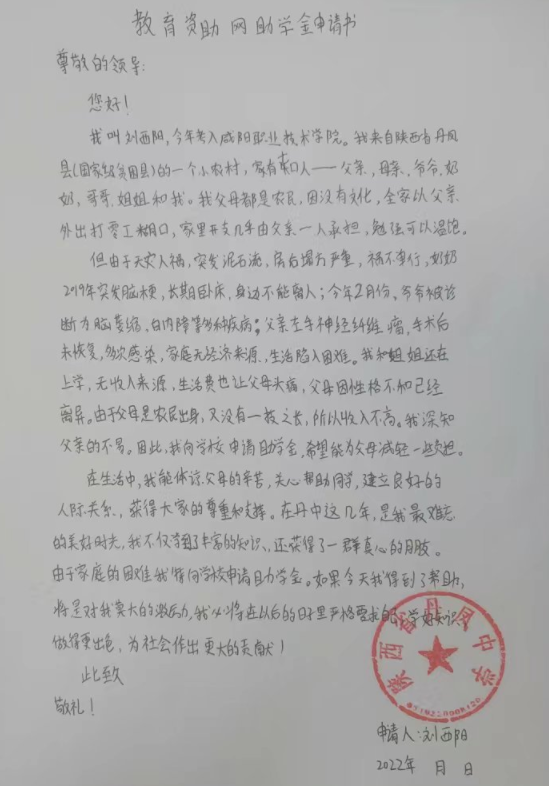 教育资助网助学金申请书
尊敬的领导:
您好!
我叫刘西阳,今年考入咸阳职业技术学院。我来自陕西省丹凤
县(国家级贫困县)的一个小农村,家有七口人——父亲,母亲、爷爷、奶
奶,哥哥、姐姐和我。我父母都是农民,因没有文化,全家以父亲
外出打零工糊口,家里开支几乎由父亲一人承担,勉强可以温饱。
但由于天灾人祸,突发泥石流,房后塌方严重,祸不单行,奶奶
2019年突发脑梗,长期卧床,身边不能离人;今年2月份、爷爷被诊
断为脑萎缩,白内障等多种疾病;父亲左手神经纤维瘤,手术后
未恢复,多次感染,家庭无经济来源、生活陷入困难。我和姐姐还在
上学,无收入来源,生活费也让父母头痛,父母因性格不和已经
离异。由于父母是农民出身,又没有一技之长,所以收入不高。我深知
父亲的不易。因此,我向学校申请助学金,希望能为父母减轻一些负担。
在生活中,我能体谅父母的辛苦,关心帮助同学,建立良好的
人际关系、获得大家的尊重和支持。在丹中这几年,是我最难忘
的美好时光,我不仅学到了丰富的知识、还获得了一群真心的朋友。
由于家庭的困难我特向学校申请助学金。如果今天我得到了帮助,
将是对我莫大的激励力,我必将在以后的日子里严格要求自己,学好知识
做得更出色,为社会作出更大的贡献!
此致
敬礼!
陕西省丹凤中学
申请人:刘西阳
2022年 月 日